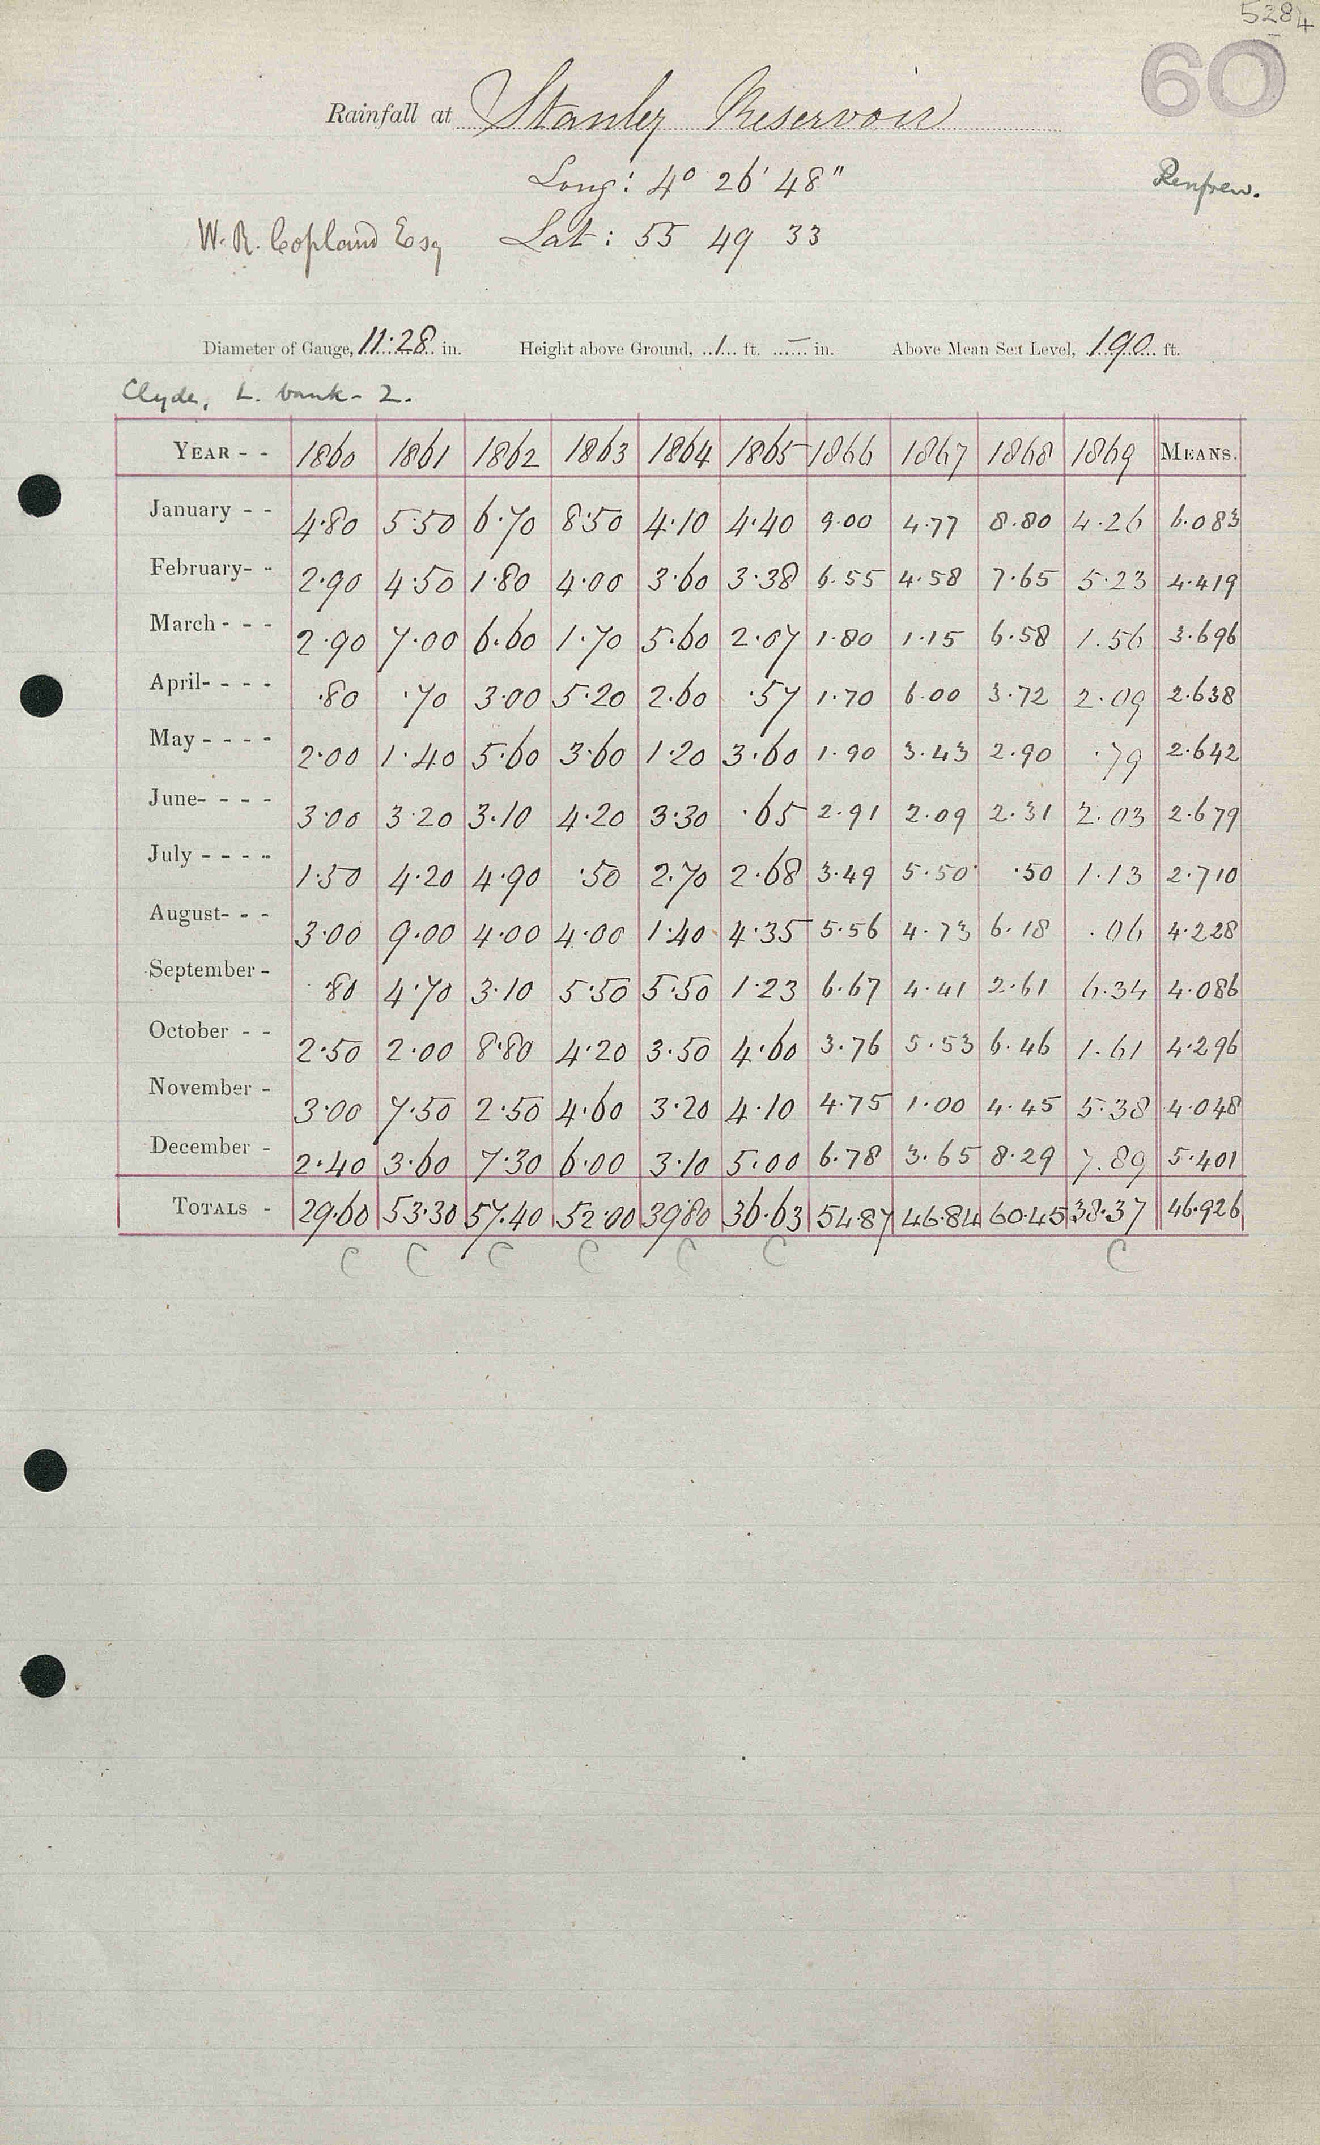 5284
60
Rainfall at Stanley Reservoir
Long: 4° 26' 48"
Renfrew.
W. R. Copland Esq Lat: 55 49 33
Diameter of Gauge, 11.28 in. Height above Ground, 1 ft. – in. Above Mean Sea Level, 190 ft.
Clyde, L. bank - 2.
YEAR - - 1860 1861 1862 1863 1864 1865 1866 1867 1868 1869 MEANS.
January - - 4.80 5.50 6.70 8.50 4.10 4.40 9.00 4.77 8.80 4.26 6.083
February- - 2.90 4.50 1.80 4.00 3.60 3.38 6.55 4.58 7.65 5.23 4.419
March - - - 2.90 7.00 6.60 1.70 5.60 2.07 1.80 1.15 6.58 1.56 3.696
April- - - - .80 .70 3.00 5.20 2.60 .57 1.70 6.00 3.72 2.09 2.638
May - - - - 2.00 1.40 5.60 3.60 1.20 3.60 1.90 3.43 2.90 .79 2.642
June- - - - 3.00 3.20 3.10 4.20 3.30 .65 2.91 2.09 2.31 2.03 2.679
July - - - - 1.50 4.20 4.90 .50 2.70 2.68 3.49 5.50 .50 1.13 2.710
August- - - 3.00 9.00 4.00 4.00 1.40 4.35 5.56 4.73 6.18 .06 4.228
September - .80 4.70 3.10 5.50 5.50 1.23 6.67 4.41 2.61 6.34 4.086
October - - 2.50 2.00 8.80 4.20 3.50 4.60 3.76 5.53 6.46 1.61 4.296
November - 3.00 7.50 2.50 4.60 3.20 4.10 4.75 1.00 4.45 5.38 4.048
December - 2.40 3.60 7.30 6.00 3.10 5.00 6.78 3.65 8.29 7.89 5.401
TOTALS - 29.60 53.30 57.40 52.00 39.80 36.63 54.87 46.84 60.45 38.37 46.926
C C C C C C C